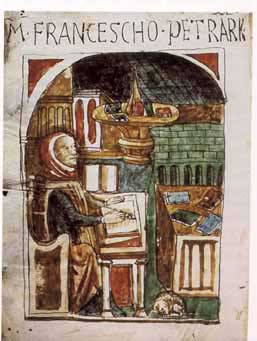 M · FRANCESCHO · PETRARK